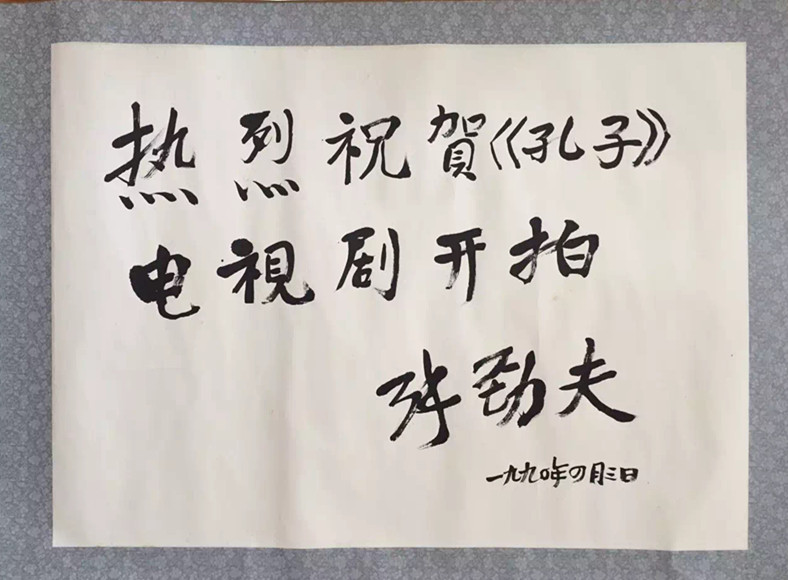 热烈祝賀《孔子》
电視剧开拍
张劲夫
一九九〇年四月三日